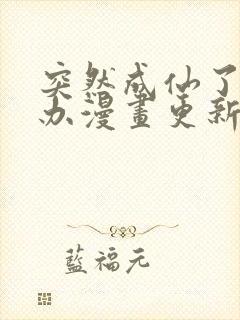 突然成仙了
办漫畫更新
藍福元